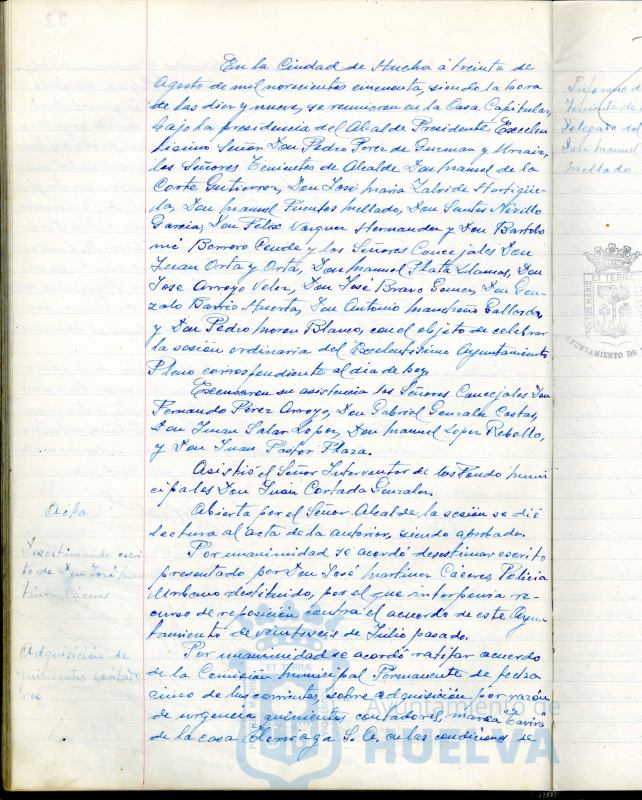 En la Ciudad de Huelva á treinta de
Agosto de mil novecientos cincuenta, siendo la hora
de las diez y nueve, se reunieron en la Casa Capitular,
bajo la presidencia del Alcalde Presidente Excelen-
tisimo Señor Don Pedro Perez de Guzman y Urzaiz,
los Señores Tenientes de Alcalde Don Manuel de la
Corte Gutierrez, Don José Maria Zalvide Hortigüe-
la, Don Manuel Fuentes Mellado, Don Santos Novillo
Garcia, Don Felix Vazquez Hernandez y Don Bartolo
mé Borrero Conde y los Señores Concejales Don
Juan Orta y Orta, Don Manuel Plata Llamas, Don
Jose Arroyo Velez, Don José Bravo Gomez, Don Gon-
zalo Barrio Huerta, Don Antonio Mancheño Gallardo,
y Don Pedro Moron Blanco, con el objeto de celebrar
la sesión ordinaria del Excelentisimo Ayuntamiento
Pleno correspondiente al dia de hoy.
Excusaron su asistencia los Señores Concejales Don
Fernando Pérez Arroyo, Don Gabriel Gonzalez Costas,
Don Juan Salas Lopez, Don Manuel Lopez Rebollo,
y Don Juan Pastor Plaza.
Asistió el Señor Interventor de los Fondo muni
cipales Don Juan Cortada Gonzalez.
Acta
Abierta por el Señor Alcalde la sesión se dió
lectura al acta de la anterior, siendo aprobada.
Desestimando escri
to de Don José Mar
tinez Cáceres
Por unanimidad se acordó desestimar escrito
presentado por Don José Martinez Cáceres, Policia
Urbano destituido, por el que interponia re-
curso de reposición contra el acuerdo de este Ayun-
tamiento de veintiseis de Julio pasado.
Adquisición de
quinientos contado
res
Por unanimidad se acordó ratificar acuerdo
de la Comisión Municipal Permanente de fecha
cinco de los corrientes, sobre adquisición por razón
de urgencia quinientos contadores, marca "Tavira"
de la casa S. A. en las condiciones se
Informe d
Teniente d
Delegado del
Don Manuel
Mellado
AYUNTAMIENTO DE
Ayuntamiento de
HUELVA